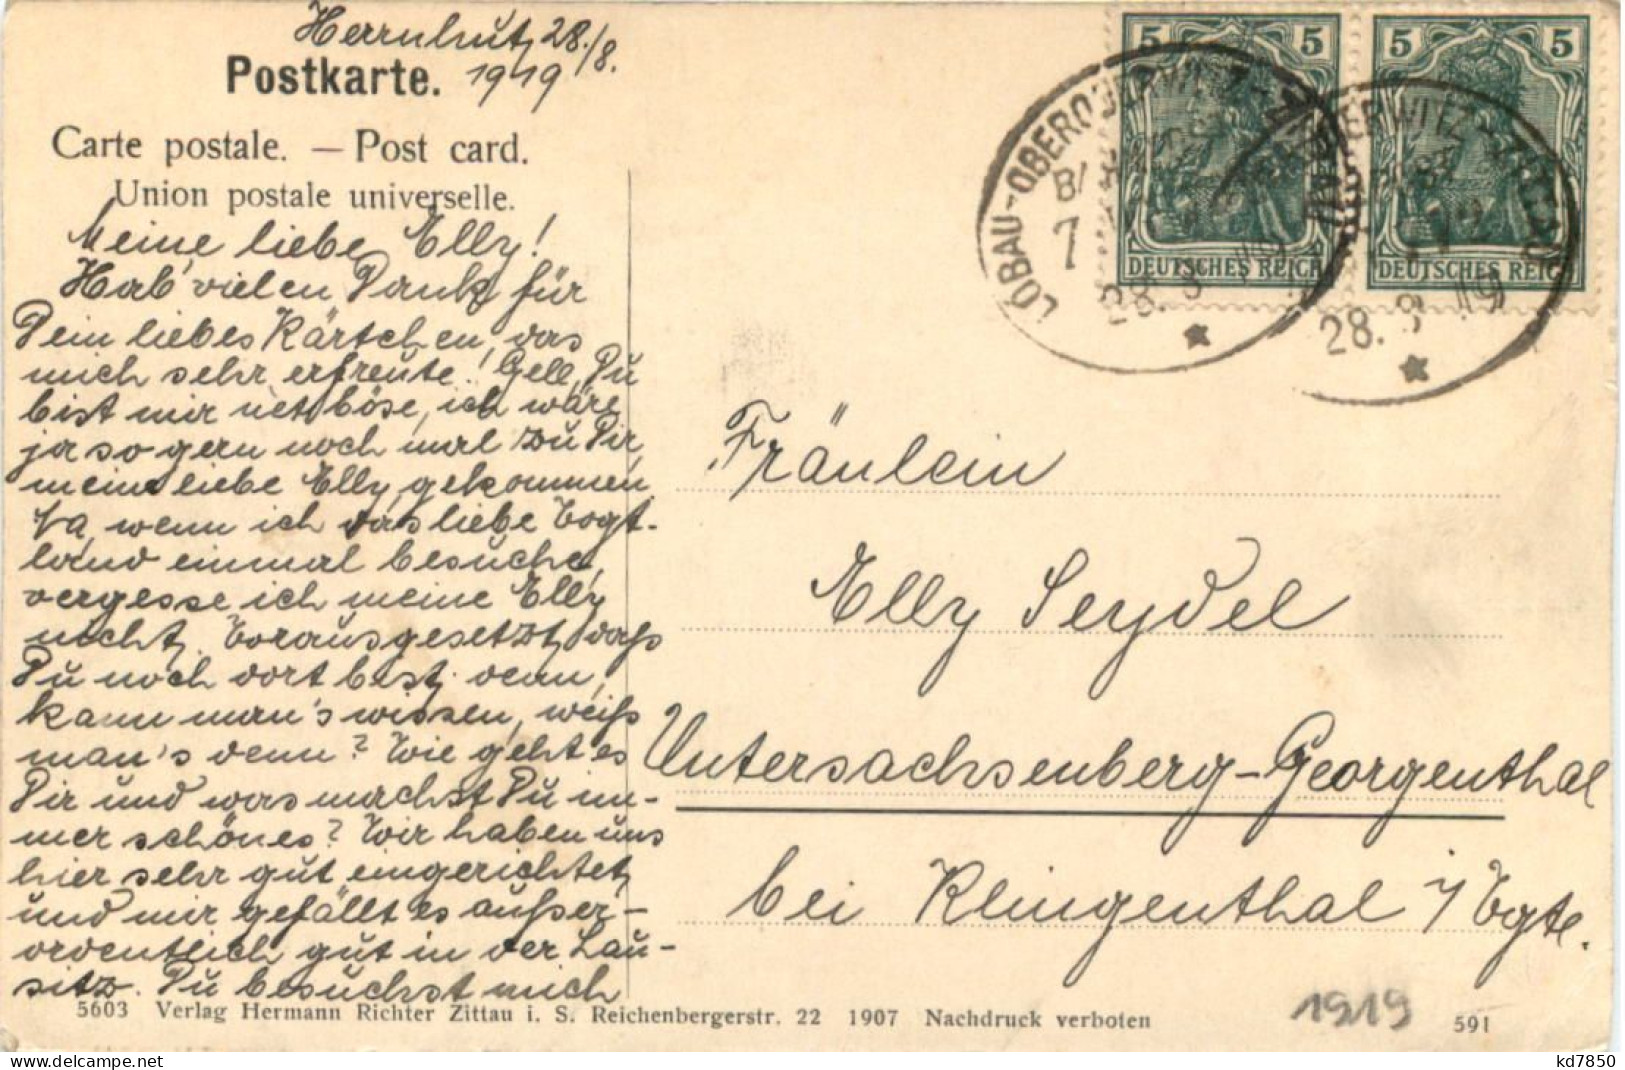 Herrnhut, 28./8.
1919
Postkarte.
Carte postale. — Post card.
Union postale universelle.
Meine liebe Elly!
Hab' vielen Dank für
Dein liebes Kärtchen, das
mich sehr erfreute! Gell, Du
bist mir net böse, ich wäre
ja so gern noch mal zu Dir,
meine liebe Elly, gekommen.
Na, wenn ich das liebe Vogt-
land einmal besuche,
vergesse ich meine Elly
nicht. Vorausgesetzt, daß
Du noch dort bist, denn,
kann man's wissen, weiß
man's denn? Wie geht es
Dir und was machst Du im-
mer schönes? Wir haben uns
hier sehr gut eingerichtet,
und mir gefällt es außer-
ordentlich gut in der Lau-
sitz. Du besuchst mich
5 5 DEUTSCHES REICH
5 5 DEUTSCHES REICH
LÖBAU-OBERODERWITZ-ZITTAU
28. 8. 19
Fräulein
Elly Seydel
Untersachsenberg-Georgenthal
bei Klingenthal i/Vgtl.
5603 Verlag Hermann Richter Zittau i. S. Reichenbergerstr. 22 1907 Nachdruck verboten
1919
591
kd7850